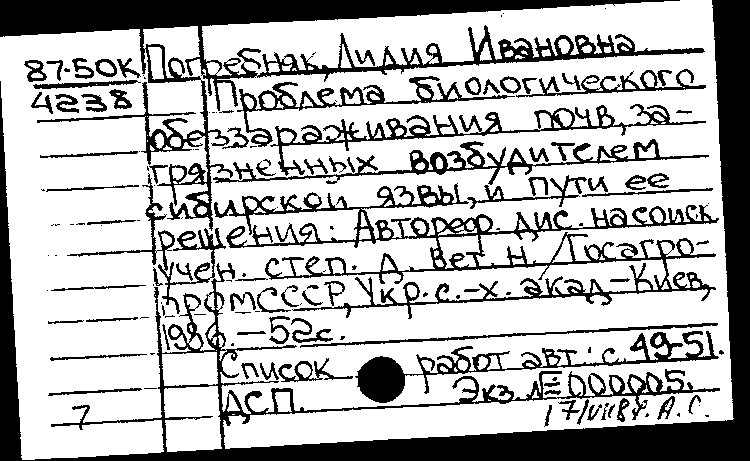 87-50К Погребняк, Лидия Ивановна
4238 Проблема биологического
обеззараживания почв, за-
грязненных возбудителем
сибирской язвы, и пути ее
решения: Автореф. дис. на соиск
учен. степ. д. вет. н. / Госагро-
пром СССР, Укр. с.-х. акад - Киев,
1986. - 52 с.
Список работ авт.: с. 49-51.
ДСП. Экз. № 000005.
7 17/VII 87. А. С.